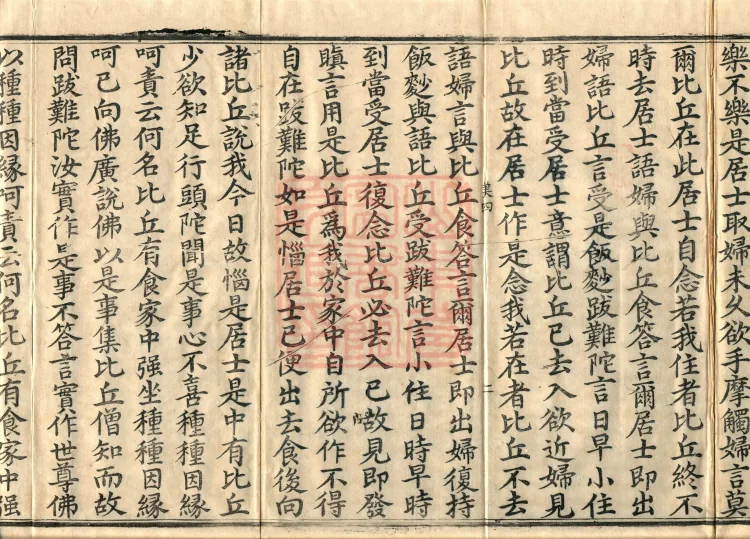 樂不樂是居士取婦未久欲手摩觸婦言莫
爾比丘在此居士自念若我住者比丘終不
時去居士語婦與比丘食答言爾居士即出
婦語比丘言受是飯麨跋難陀言日早小住
時到當受居士意謂比丘已去入欲近婦見
比丘故在居士作是念我若在者比丘不去
語婦言與比丘食答言爾居士即出婦復持
飯麨與語比丘受跋難陀言小住日時早時
到當受居士復念比丘必去入已故見即發
瞋言用是比丘爲我於家中自所欲作不得
自在跋難陀如是惱居士已便出去食後向
諸比丘說我今日故惱是居士是中有比丘
少欲知足行頭陀聞是事心不喜種種因緣
呵責云何名比丘有食家中强坐種種因緣
呵已向佛廣說佛以是事集比丘僧知而故
問跋難陀汝實作是事不答言實作世尊佛
以種種因緣呵責云何名比丘有食家中强